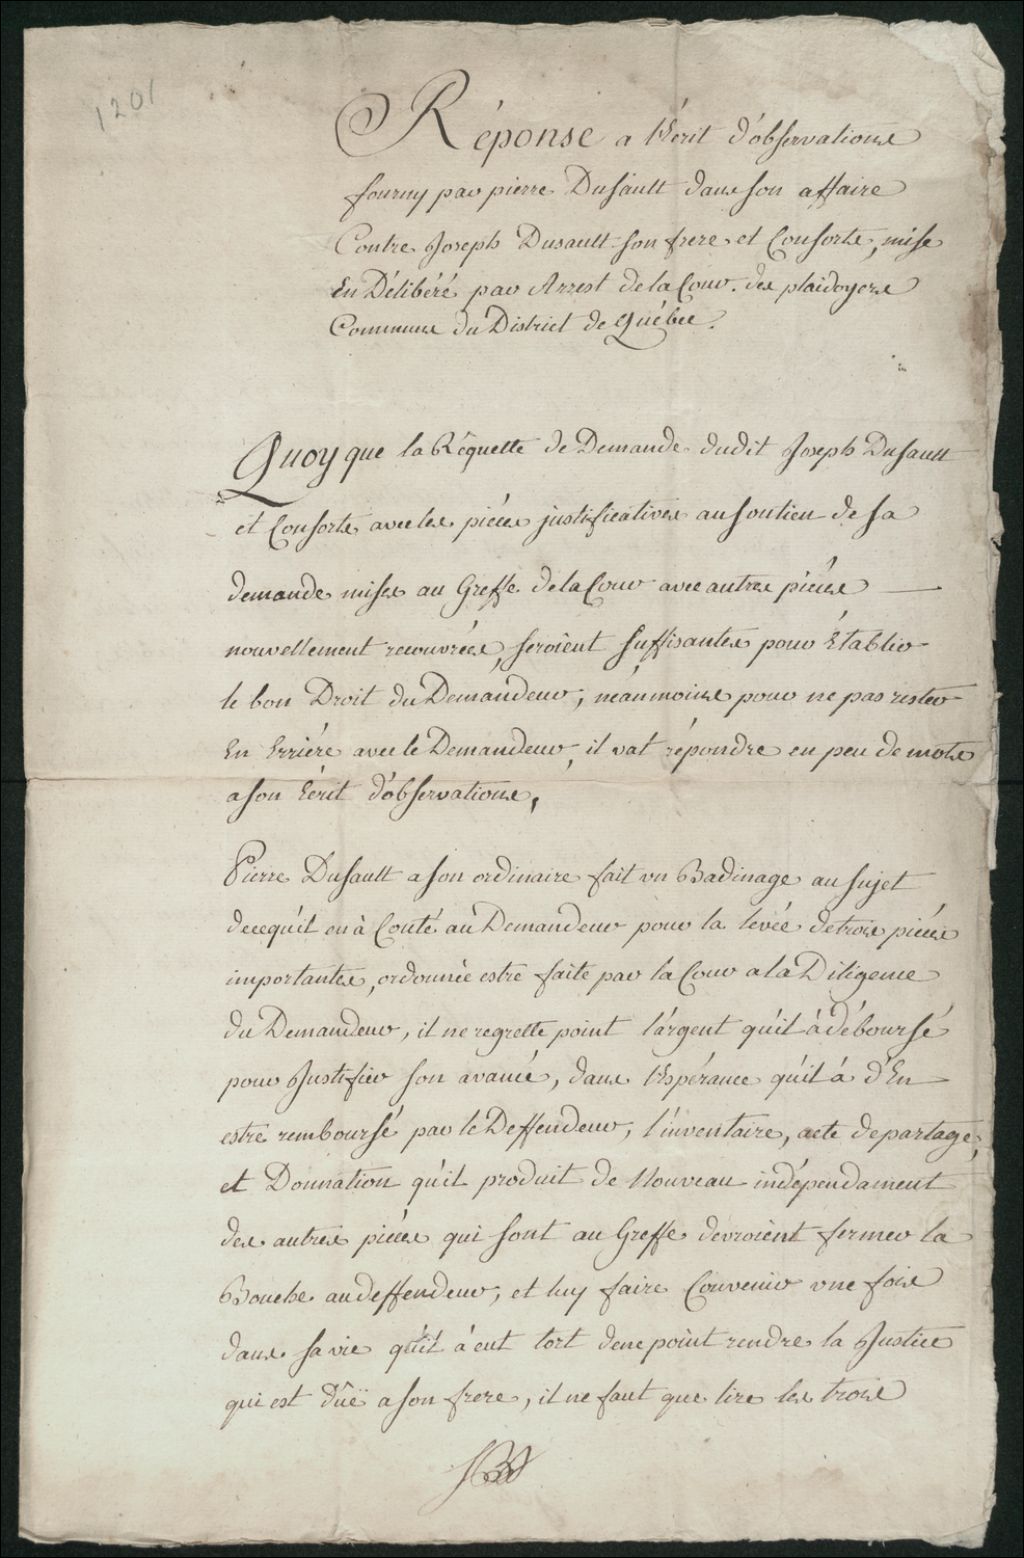 1201
Réponse a l'écrit d'observations
fourny par pierre Dusault dans son affaire
Contre Joseph Dusault son frere et Consorts, mise
En Délibéré par Arrest de la Cour des plaidoyers
Communs du District de Québec.
Quoy que la Réquette de Demande dudit Joseph Dusault
et Consorts avec les piéces justificatives au soutien de sa
demande mises au Greffe de la Cour avec autres piéces
nouvellement recouvrées, seroient suffisantes pour Établir
le bon Droit du Demandeur, néanmoins pour ne pas rester
En Erriére avec le Demandeur, il vat répondre en peu de mots
a son Écrit d'observations,
Pierre Dusault a son ordinaire fait un Badinage au sujet
de ce qu'il en à Couté au Demandeur pour la levée de trois piéces
importantes, ordonnée estre faite par la Cour a la Diligence
du Demandeur, il ne regrette point l'argent qu'il à déboursé
pour Justifier son avancé, dans l'Espérance qu'il à d'En
estre remboursé par le Deffendeur, l'inventaire, acte de partage,
et Donnation qu'il produit de Nouveau indépendament
des autres piéces qui sont au Greffe devroient fermer la
Bouche au deffendeur, et luy faire Convenir une fois
dans sa vie qu'il à eut tort de ne point rendre la Justice
qui est dûë a son frere, il ne faut que lire les trois